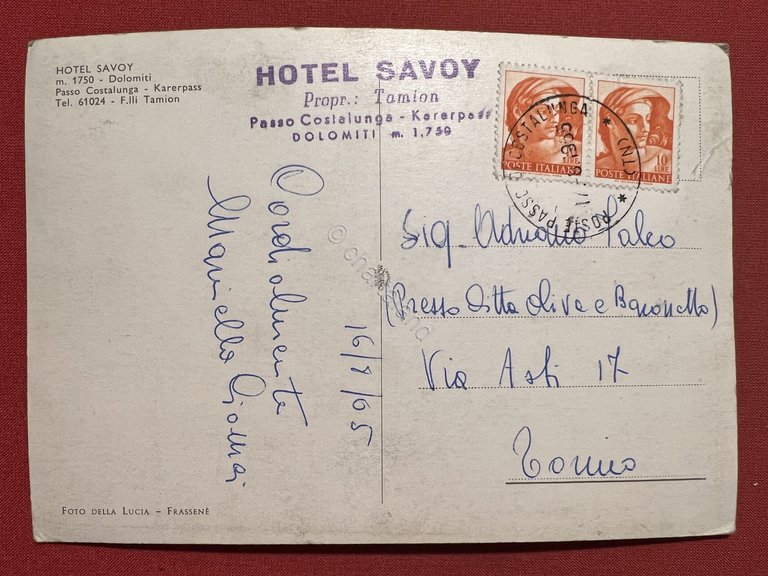 HOTEL SAVOY
m. 1750 - Dolomiti
Passo Costalunga - Karerpass
Tel. 61024 - F.lli Tamion
HOTEL SAVOY
Propr.: Tamion
Passo Costalunga - Karerpass
DOLOMITI m. 1.750
10
LIRE
POSTE ITALIANE
POSTE ITALIANE
COSTALUNGA * (TN) *
PASSO
Cordialmente
16/8/65
Sig. Adriano
(Presso Ditta Oliva e
Via Asti 17
Torino
FOTO DELLA LUCIA - FRASSENÈ